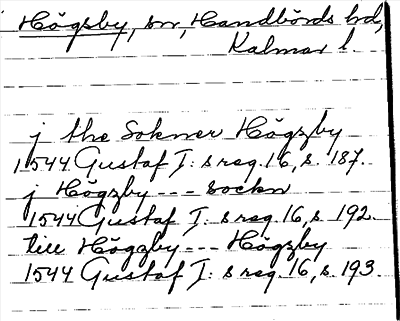 Högsby, sn, Handbörds hd,
Kalmar l.
j the Sokner Högzby
1544 Gustaf I: s reg. 16, s. 187.
j Högzby --- sockn
1544 Gustaf I: s reg. 16, s. 192.
till Högzby --- Högzby
1544 Gustaf I: s reg. 16, s. 193.